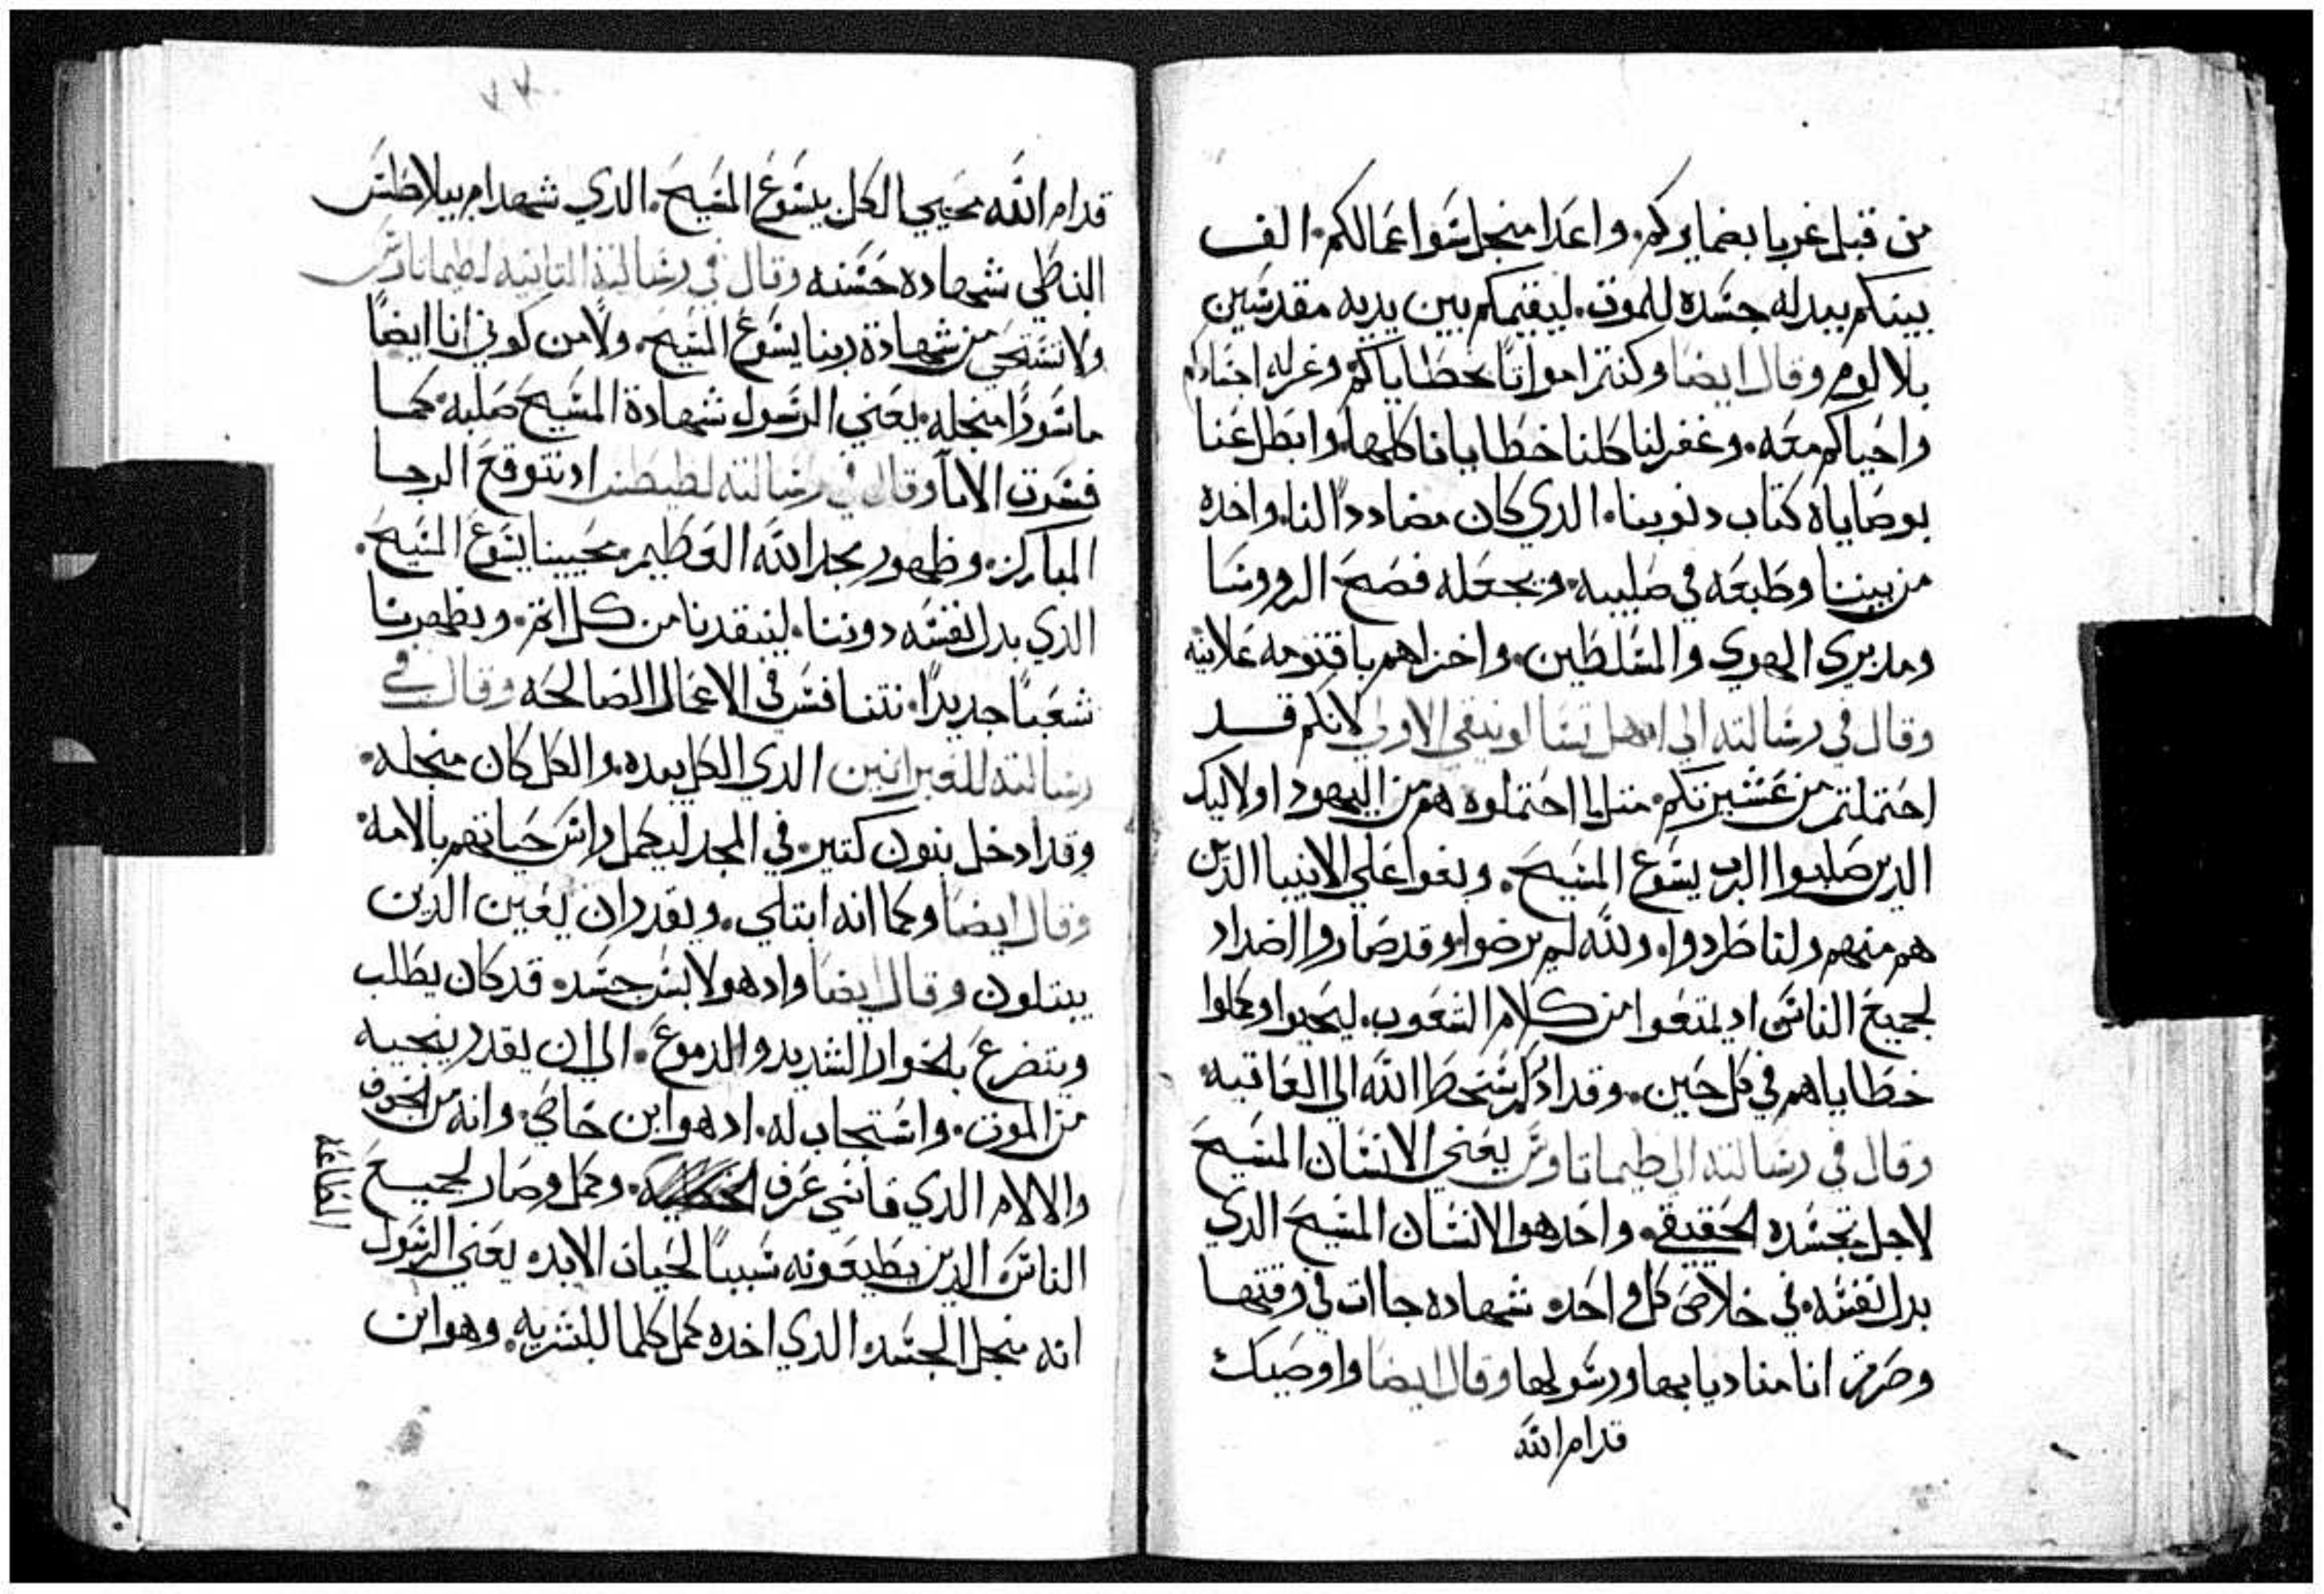 من قبل غربا بضمايركم. واعدا منجل سو اعمالكم. الف
بينكم ببدله جسده للموت. ليقيمكم بين يديه مقدسين
بلا لوم وقال ايضا وكنتم امواتا بخطاياكم وغرله اجسادكم
واحياكم معه. وغفر لنا كلنا خطايانا كلها. وابطل عنا
بوصاياه كتاب دنوبنا. الدي كان مضاددا لنا. واخده
من بيننا وطبعه في صليبه. وبجعله فضح الروسا
ومدبري الهوي والمسلطين. واخزاهم باقنومه علانيه
وقال في رسالته الي اهل تسالونيقي الاولي لانكم قد
احتملتم من عشيرتكم. متل ما احتملوه هم من اليهود اولاليك
الدين صلبوا الرب يسوع المسيح. وبغوا علي الانبيا الدين
هم منهم ولنا طردوا. ولله لم يرضوا. وقد صاروا اضداد
لجميع الناس اد يمنعوا من كلام الشعوب. ليحيوا وكملوا
خطاياهم في كل حين. وقد ادركهم سخط الله الي العاقبه.
وقال في رسالته الي طيماتاوس يعني الانسان المسيح
لاجل تجسده الحقيقي. واحد هو الانسان المسيح الدي
بدل نفسه في خلاص كل واحد شهاده جاات في وقتها
وصرت انا مناديا بها ورسولها وقال ايضا واوصيك
قدام الله
قدام الله محيي الكل يسوع المسيح. الدي شهد امام بيلاطس
النبطي شهاده حسنه وقال في رسالته التانيه لطيماتاوس
ولا تستحي من شهادة ربنا يسوع المسيح. ولا من كوني انا ايضا
ماسورا منجله. يعني الرسول شهادة المسيح صلبه. كما
فسرت الابا وقال في رسالته لطيطس اد نتوقع الرجا
المبارك. وظهور مجد الله العظيم. محيينا يسوع المسيح.
الدي بدل نفسه دوننا. لينقدنا من كل اتم. ويظهرنا
شعبا جديدا. نتنافس في الاعمال الصالحه وقال في
رسالته للعبرانين الدي الكل بيده. والكل كان منجله.
وقد ادخل بنون كتير. في المجد ليكمل راس حياتهم بالامه.
وقال ايضا وكما انه ابتلي. ويقدر ان يعين الدين
يبتلون وقال ايضا واد هو لابس جسد. قد كان يطلب
ويتضرع بالخوار الشديد والدموع. الي ان يقدر ينجيه
من الموت. واستجاب له. اد هو ابن خاص. وانه من الخوف
والالام الدي قاسي عرف وكمل وصار لجميع
الطاعه
الناس الدين يطيعونه سببا لحياة الابد. يعني الرسول
انه منجل الجسد الدي اخده كمل كلما للبشريه. وهو ابن